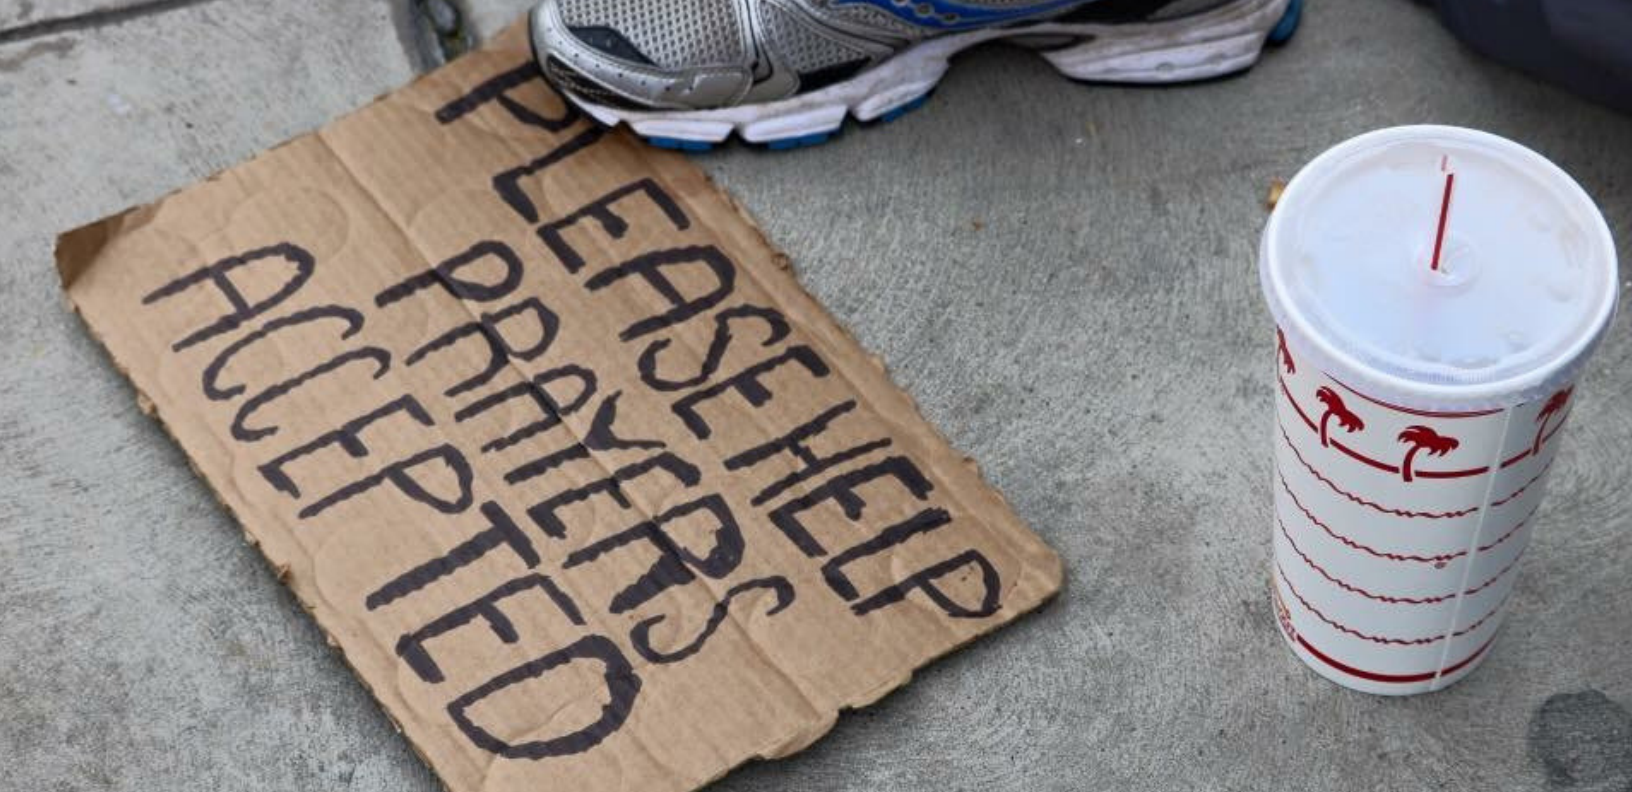 PLEASE HELP
PRAYERS
ACCEPTED